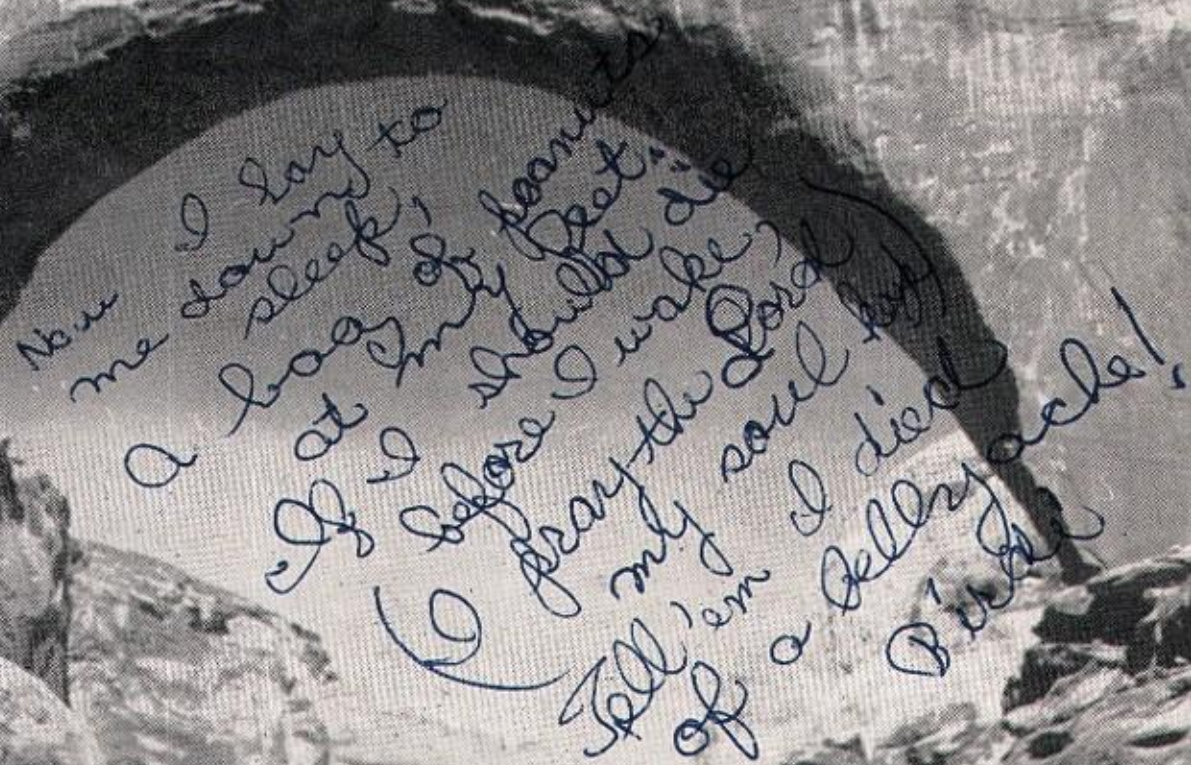 Now I lay
me down to
sleep,
A bag of peanuts
at my feet.
If I should die
before I wake,
(I pray the Lord
my soul
Tell 'em I died
of a bellyache!